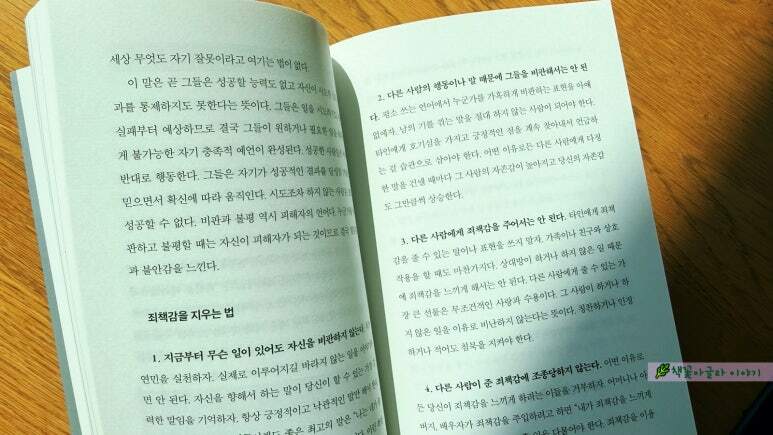 세상 무엇도 자기 잘못이라고 여기는 법이 없다.
이 말은 곧 그들은 성공할 능력도 없고 자신이
과를 통제하지도 못한다는 뜻이다. 그들은 일을
실패부터 예상하므로 결국 그들이 원하거나 필요한
게 불가능한 자기 충족적 예언이 완성된다. 성공한
반대로 행동한다. 그들은 자기가 성공적인 결과를
믿으면서 확신에 따라 움직인다. 시도조차 하지 않는
성공할 수 없다. 비판과 불평 역시 피해자의 언어다.
판하고 불평할 때는 자신이 피해자가 되는 것이므로 결국
과 불안감을 느낀다.
죄책감을 지우는 법
1. 지금부터 무슨 일이 있어도 자신을 비판하지 않는다.
연민을 실천하자. 실제로 이루어지길 바라지 않는 일을
면 안 된다. 자신을 향해서 하는 말이 당신이 할 수 있는 가장
력한 말임을 기억하자. 항상 긍정적이고 낙관적인 말만 해야 한
좋은 최고의 말은 "나는 내가
2. 다른 사람의 행동이나 말 때문에 그들을 비판해서는 안 된
다. 평소 쓰는 언어에서 누군가를 가혹하게 비판하는 표현을 아예
없애자. 남의 기를 꺾는 말을 절대 하지 않는 사람이 되어야 한다.
타인에게 호기심을 가지고 긍정적인 점을 계속 찾아내서 언급하
는 걸 습관으로 삼아야 한다. 어떤 이유로든 다른 사람에게 다정
한 말을 건넬 때마다 그 사람의 자존감이 높아지고 당신의 자존감
도 그만큼씩 상승한다.
3. 다른 사람에게 죄책감을 주어서는 안 된다. 타인에게 죄책
감을 줄 수 있는 말이나 표현을 쓰지 말자. 가족이나 친구와 상호
작용을 할 때도 마찬가지다. 상대방이 하거나 하지 않은 일 때문
에 죄책감을 느끼게 해서는 안 된다. 다른 사람에게 줄 수 있는 가
장 큰 선물은 무조건적인 사랑과 수용이다. 그 사람이 하거나 하
지 않은 일을 이유로 비난하지 않는다는 뜻이다. 칭찬하거나 인정
하거나 적어도 침묵을 지켜야 한다.
4. 다른 사람이 준 죄책감에 조종당하지 않는다. 어떤 이유로
든 당신이 죄책감을 느끼게 하려는 이들을 거부하자. 어머니나 아
버지, 배우자가 죄책감을 주입하려고 하면 "내가 죄책감을 느끼게
일을 다물어야 한다. 죄책감을 이용
책꽃아글라 이야기